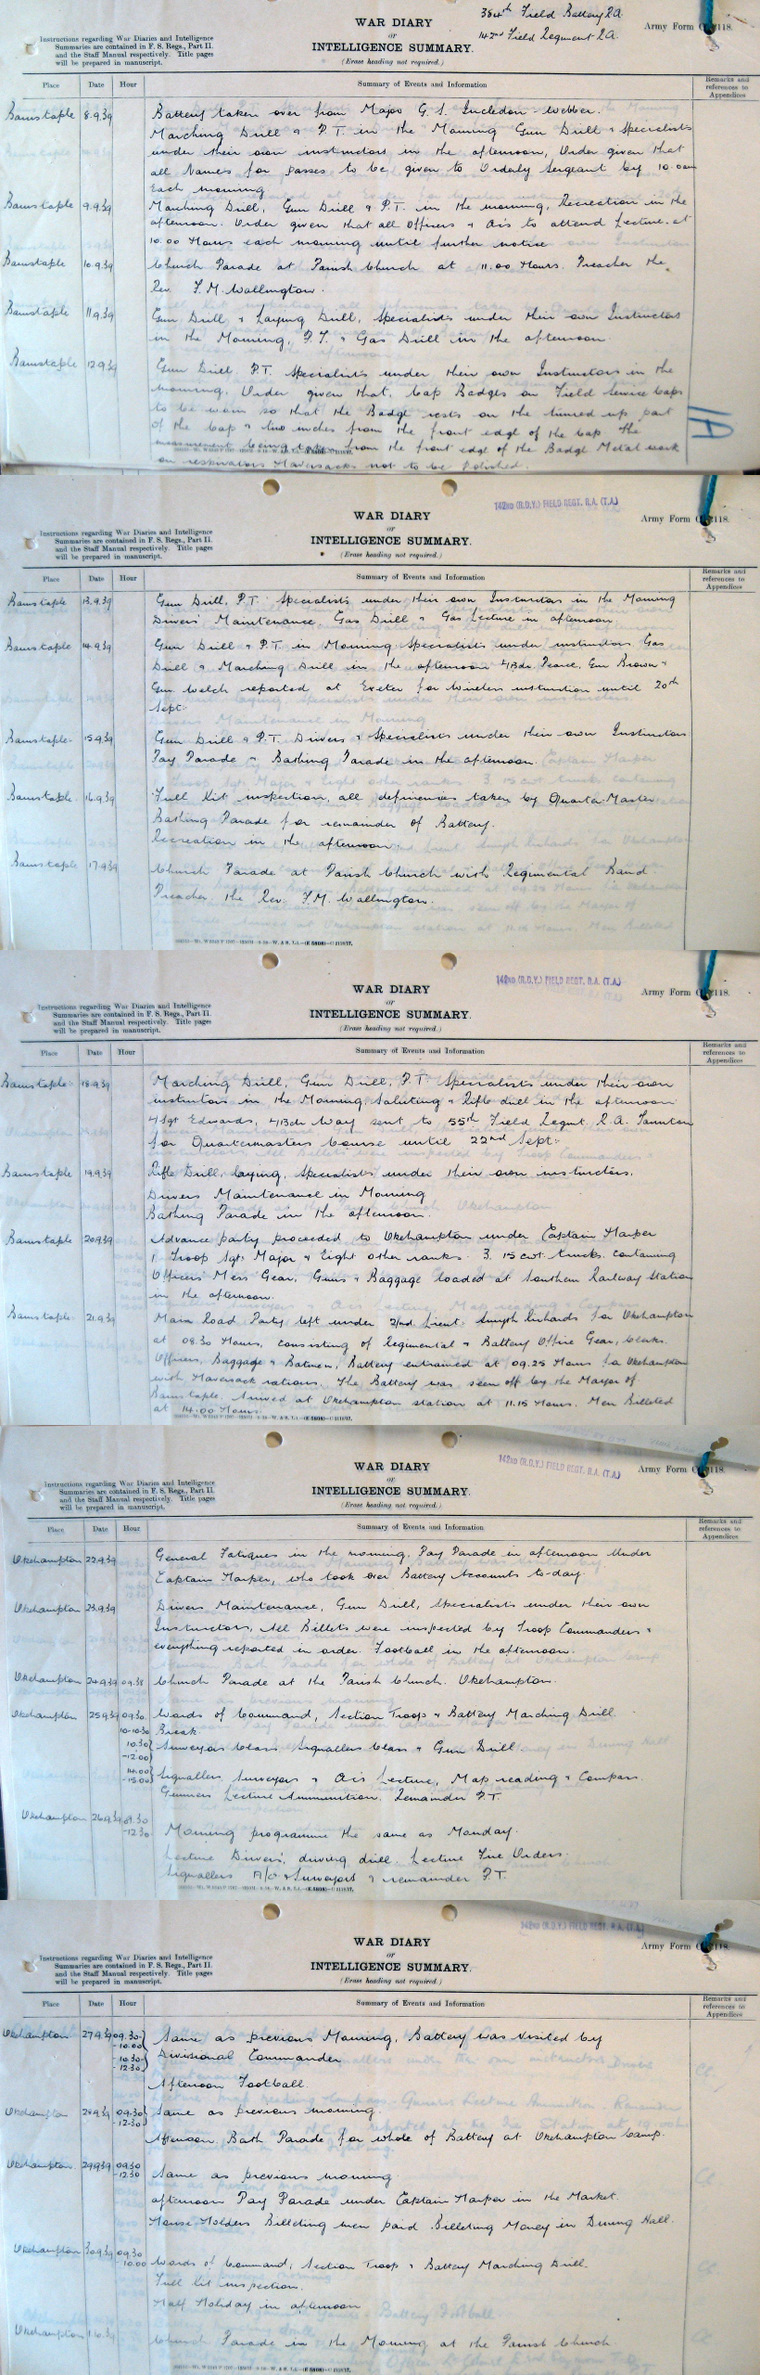 384th Field Battery R.A.
142nd Field Regiment R.A.
WAR DIARY
or
INTELLIGENCE SUMMARY.
(Erase heading not required.)
Army Form C. 2118.
Instructions regarding War Diaries and Intelligence
Summaries are contained in F. S. Regs., Part II.
and the Staff Manual respectively. Title pages
will be prepared in manuscript.
Place Date Hour Summary of Events and Information Remarks and references to Appendices
Barnstaple 8.9.39 Battery taken over from Major G. S. Incledon-Webber.
Marching Drill & P.T. in the Morning Gun Drill & Specialists
under their own instructors in the afternoon, Order given that
all Names for passes to be given to Orderly Sergeant by 10.00am
Each morning
Barnstaple 9.9.39 Marching Drill, Gun Drill & P.T. in the morning, Recreation in the
afternoon. Order given that all Officers & Acks to attend Lecture at
10.00 Hours each morning until further notice
Barnstaple 10.9.39 Church Parade at Parish Church at 11.00 Hours. Preacher the
Rev. F. M. Wallington.
Barnstaple 11.9.39 Gun Drill & Laying Drill, Specialists under their own Instructors
in the Morning, P.T. & Gas Drill in the afternoon.
Barnstaple 12.9.39 Gun Drill P.T. Specialists under their own Instructors in the
morning. Order given that, Cap Badges on Field Service Caps
to be worn so that the Badge rests on the turned up part
of the Cap & two inches from the front edge of the Cap the
measurement being taken from the front edge of the Badge Metal work
on respirators Haversacks not to be Polished.
1A
142ND (R.D.Y.) FIELD REGT. R.A. (T.A.)
WAR DIARY
or
INTELLIGENCE SUMMARY.
(Erase heading not required.)
Army Form C. 2118.
Instructions regarding War Diaries and Intelligence
Summaries are contained in F. S. Regs., Part II.
and the Staff Manual respectively. Title pages
will be prepared in manuscript.
Place Date Hour Summary of Events and Information Remarks and references to Appendices
Barnstaple 13.9.39 Gun Drill, P.T. Specialists under their own Instructors in the Morning
Drivers Maintenance, Gas Drill & Gas Lecture in afternoon.
Barnstaple 14.9.39 Gun Drill & P.T. in Morning Specialists under instructors Gas
Drill & Marching Drill in the afternoon L/Bdr. Pearce, Gnr Brown &
Gnr. Welch reported at Exeter for Wireless instruction until 20th
Sept.
Barnstaple 15.9.39 Gun Drill & P.T. Drivers & Specialists under their own Instructors
Pay Parade & Bathing Parade in the afternoon.
Barnstaple 16.9.39 Full kit inspection, all deficiencies taken by Quarter Master
Bathing Parade for remainder of Battery.
Recreation in the afternoon.
Barnstaple 17.9.39 Church Parade at Parish Church with Regimental Band
Preacher the Rev. F.M. Wallington.
142ND (R.D.Y.) FIELD REGT. R.A. (T.A.)
WAR DIARY
or
INTELLIGENCE SUMMARY.
(Erase heading not required.)
Army Form C. 2118.
Instructions regarding War Diaries and Intelligence
Summaries are contained in F. S. Regs., Part II.
and the Staff Manual respectively. Title pages
will be prepared in manuscript.
Place Date Hour Summary of Events and Information Remarks and references to Appendices
Barnstaple 18.9.39 Marching Drill, Gun Drill, P.T. Specialists under their own
instructors in the Morning, Saluting & Rifle drill in the afternoon
L/Sgt Edwards, L/Bdr Way sent to 55th Field Regmt. R.A. Taunton
for Quartermasters Course until 22nd Sept:-
Barnstaple 19.9.39 Rifle Drill, Laying, Specialists under their own instructors.
Drivers Maintenance in Morning
Bathing Parade in the afternoon.
Barnstaple 20.9.39 Advance party proceeded to Okehampton under Captain Harper
1 Troop Sgt. Major & Eight other ranks. 3. 15 cwt. trucks. containing
Officers Mess Gear, Guns & Baggage loaded at Southern Railway Station
in the afternoon.
Barnstaple 21.9.39 Main Road Party left under 2nd Lieut. Smyth Richards for Okehampton
at 08.30 Hours, consisting of Regimental & Battery Office Gear, Clerks,
Officers, Baggage & Batmen, Battery entrained at 09.25 Hours for Okehampton
with Haversack rations. The Battery was seen off by the Mayor of
Barnstaple, Arrived at Okehampton station at 11.15 Hours. Men Billeted
at 14.00 Hours.
142ND (R.D.Y.) FIELD REGT. R.A. (T.A.)
WAR DIARY
or
INTELLIGENCE SUMMARY.
(Erase heading not required.)
Army Form C. 2118.
Instructions regarding War Diaries and Intelligence
Summaries are contained in F. S. Regs., Part II.
and the Staff Manual respectively. Title pages
will be prepared in manuscript.
Place Date Hour Summary of Events and Information Remarks and references to Appendices
Okehampton 22.9.39 General Fatigues in the morning, Pay Parade in afternoon under
Captain Harper, who took over Battery Accounts to-day.
Okehampton 23.9.39 Drivers Maintenance, Gun Drill, Specialists under their own
Instructors, All Billets were inspected by Troop Commanders &
everything reported in order. Football in the afternoon.
Okehampton 24.9.39 Church Parade at the Parish Church. Okehampton.
Okehampton 25.9.39 09.30 Words of Command, Section Troop & Battery Marching Drill.
10-10.30 Break.
10.30 -12.00 Surveyors Class Signallers Class & Gun Drill
14.00 -15.00 Signallers, Surveyors & Acks Lecture, Map reading & Compass.
Gunners Lecture Ammunition, Remainder P.T.
Okehampton 26.9.39 09.30 -12.30 Morning programme the same as Monday.
Lecture Drivers', driving drill. Lecture Fire Orders.
Signallers A/c & Surveyors & remainder P.T.
142ND (R.D.Y.) FIELD REGT. R.A. (T.A.)
WAR DIARY
or
INTELLIGENCE SUMMARY.
(Erase heading not required.)
Army Form C. 2118.
Instructions regarding War Diaries and Intelligence
Summaries are contained in F. S. Regs., Part II.
and the Staff Manual respectively. Title pages
will be prepared in manuscript.
Place Date Hour Summary of Events and Information Remarks and references to Appendices
Okehampton 27.9.39 09.30 -10.00 Same as previous Morning, Battery was visited by
-10.30 -12.30 Divisional Commander
Afternoon Football.
Okehampton 28.9.39 09.30 -12.30 Same as previous morning.
Afternoon Bath Parade for whole of Battery at Okehampton Camp.
Okehampton 29.9.39 09.30 -12.30 Same as previous morning
afternoon Pay Parade under Captain Harper in the Market.
House Holders Billeting men paid Billeting Money in Dining Hall.
Okehampton 30.9.39 09.30 -10.00 Words of Command, Section Troop & Battery Marching Drill.
Full kit inspection.
Half Holiday in afternoon
Okehampton Church Parade in the Morning at the Parish Church